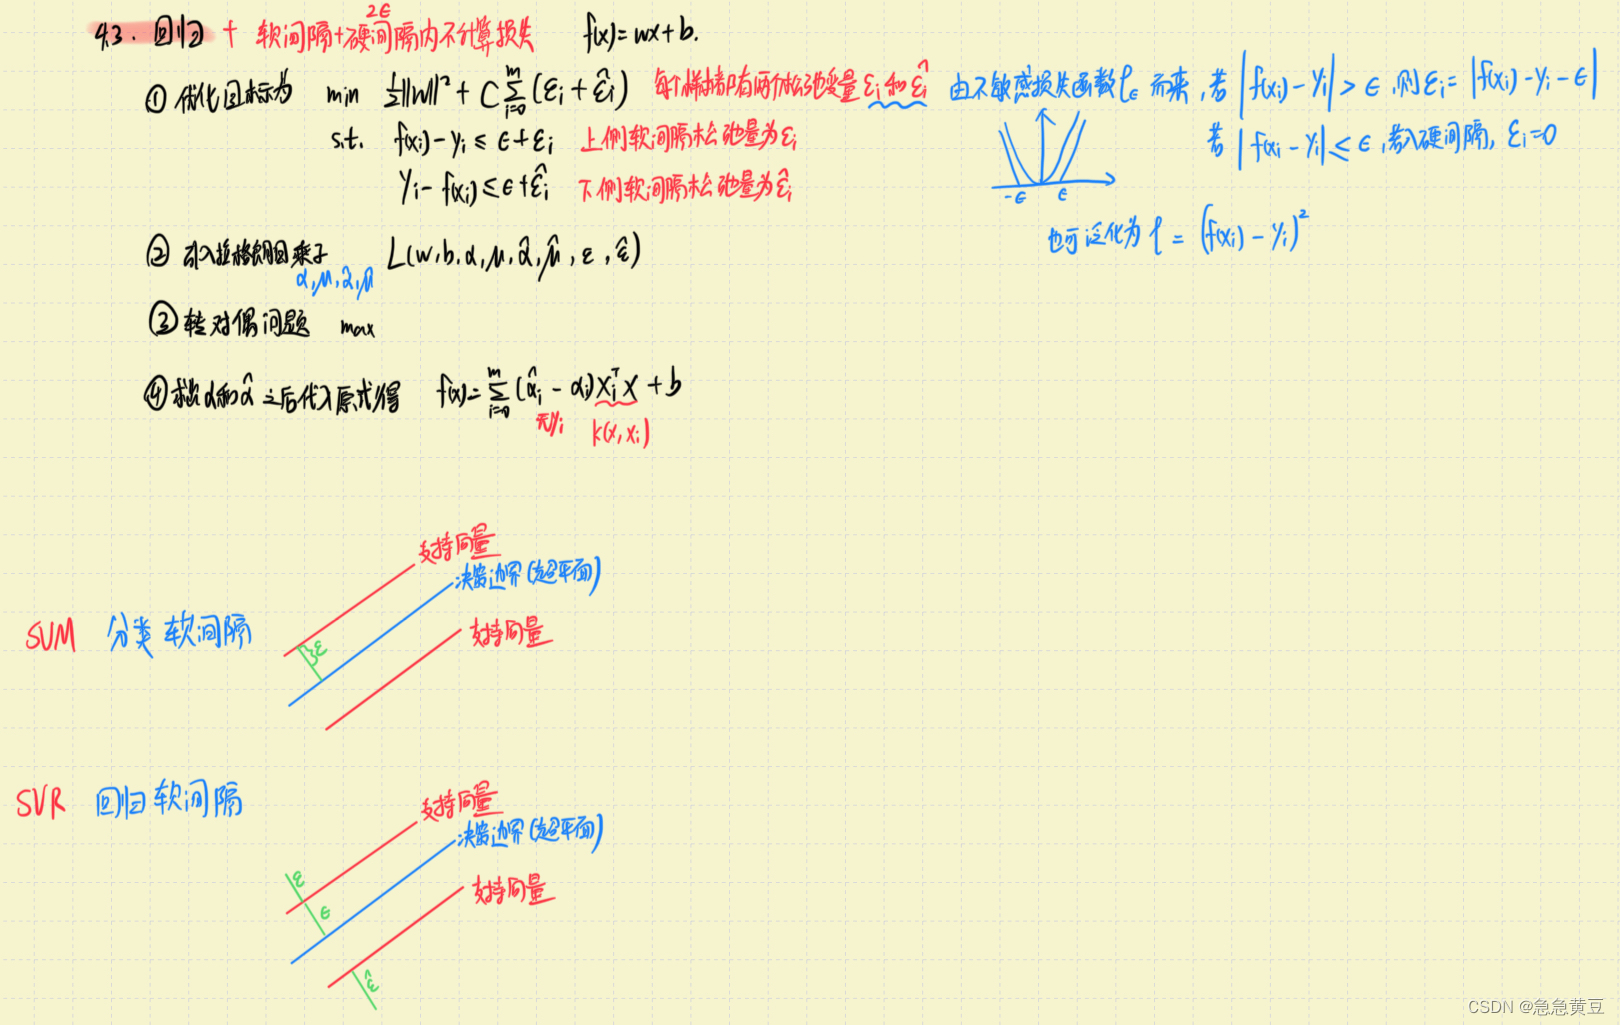 4.3. 回归 + 软间隔+硬间隔内不计算损失 f(x)=wx+b.
2ϵ
① 优化目标为 min ½||w||² + C∑_{i=0}^{m}(ε_i + ε̂_i) 每个样本都有两个松弛变量 ε_i 和 ε̂_i
s.t. f(x_i)-y_i ≤ ϵ+ε_i 上侧软间隔松弛量为 ε_i
y_i-f(x_i) ≤ ϵ+ε̂_i 下侧软间隔松弛量为 ε̂_i
由不敏感损失函数 ℓ_ϵ 而来, 若 |f(x_i)-y_i| > ϵ, 则 ε_i = |f(x_i)-y_i-ϵ|
若 |f(x_i-y_i| ≤ ϵ, 落入硬间隔, ε_i=0
-ϵ ϵ
也可泛化为 ℓ = (f(x_i)-y_i)²
② 引入拉格朗日乘子 L(w,b,α,μ,α̂,μ̂,ε,ε̂)
α,μ,α̂,μ̂
③ 转对偶问题 max
④ 求出α和α̂之后代入原式得 f(x)=∑_{i=0}^{m}(α̂_i-α_i)x_i^T x + b
无y_i k(x,x_i)
支持向量
决策边界(超平面)
SVM 分类 软间隔
支持向量
ε
SVR 回归 软间隔
支持向量
决策边界(超平面)
支持向量
ε
ϵ
ε̂
CSDN @急急黄豆